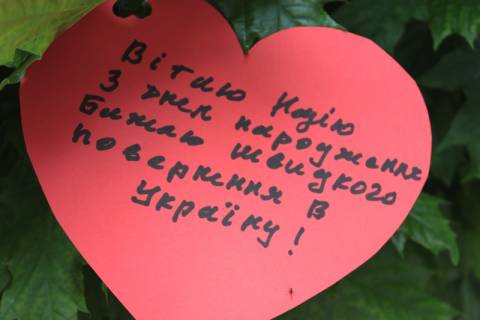 Вітаю Надію
З днем народження
Бажаю швидкого
повернення в
Україну!